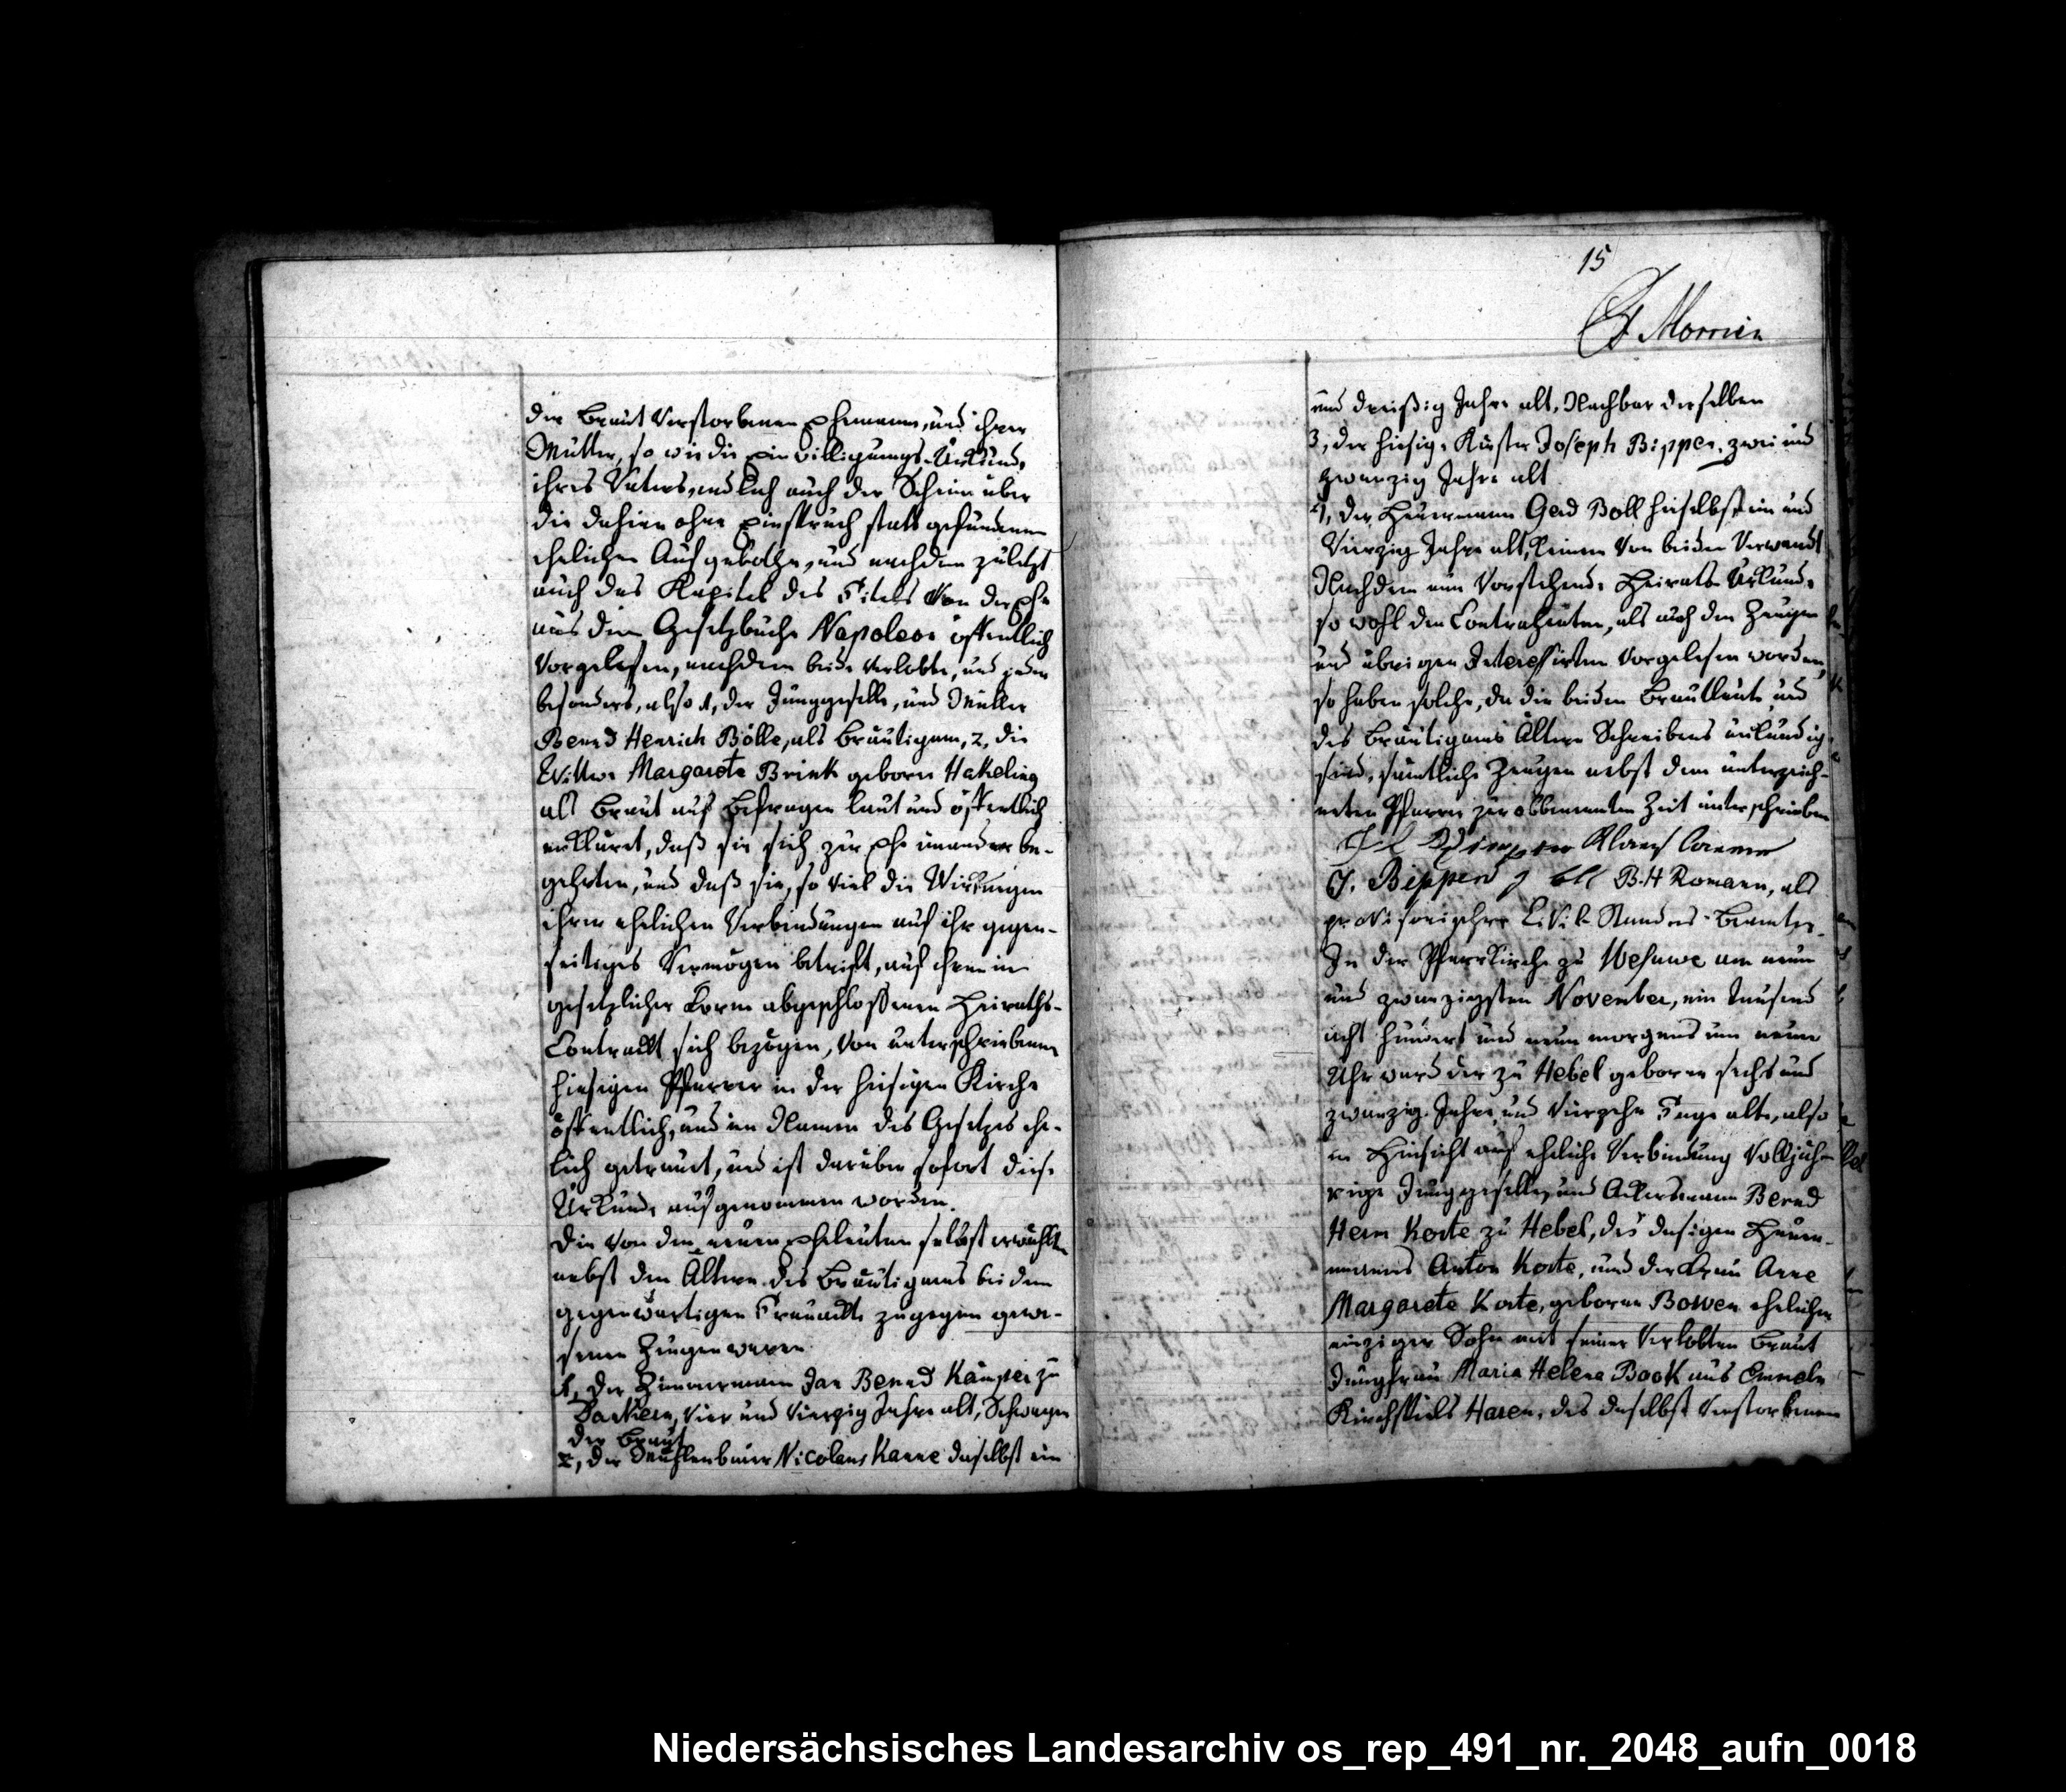 der Braut verstorbenen Ehemann, und ihrer
Mutter, so wie die Einwilligungs-Urkunde
ihres Vaters, endlich auch der Schein über
die dahier ohne Einspruch statt gefundenen
ehelichen Aufgebothe, und nachdem zuletzt
auch das Kapitel des Titels von der Ehe
aus dem Gesetzbuche Napoleon öffentlich
vorgelesen, nachdem beide Verlobte, und jeder
besonders, also 1, der Junggeselle, und Müller
Bernd Henrich Bölle, als Bräutigam, 2, die
Wittwe Margareta Brink geborne Hakeling
als Braut auf Befragen laut und öffentlich
erkläret, daß sie sich zur Ehe einander be-
gehrten, und daß sie, so viel die Wirkungen
ihrer ehelichen Verbindungen auf ihr gegen-
seitiges Vermögen betrift, auf ihren in
gesetzlicher Form abgeschloßenen Heiraths-
Contrackt sich bezögen, von unterschriebenem
hiesigen Pfarrer in der hiesigen Kirche
öffentlich, und im Namen des Gesetzes ehe-
lich getrauet, und ist darüber sofort diese
Urkunde aufgenommen worden.
Die von den neuen Eheleuten selbst erwählten
nebst den Ältern des Bräutigams bei dem
gegenwärtigen Trauackte zugegen gewe-
senen Zeugen waren
1, der Zimmermann Jan Bernd Kämper zu
vier und vierzig Jahre alt, Schwager
der Braut
2, der Nicolaus Kanne daselbst ein
15
Morrien
und dreißig Jahre alt, Nachbar derselben
3, der hiesige Küster Joseph Bippen, zwei und
zwanzig Jahre alt
4, der Heuermann Gerd Boll hieselbst ein und
vierzig Jahre alt, keinem von beiden verwandt
Nachdem nun vorstehende Heirats-Urkunde
so wohl den Contrahenten, als auch den Zeugen
und übrigen Interessirten vorgelesen worden,
so haben solche, da die beiden Brautleute und
des Bräutigams Ältern Schreibens unkundig
sind, sämtliche Zeugen nebst dem unterzeich-
neten Pfarrer zur obbenannten Zeit unterschrieben
J. Bippen B. H Romann, als
provisorischer Civil-Standes-Beamter.
In der Pfarrkirche zu Wesuwe am neun
und zwanzigsten November, ein Tausend
acht hundert und neun morgens um neun
Uhr ward der zu Hebel geborne sechs und
zwanzig Jahre und vierzehn Tage alte, also
in Hinsicht auf eheliche Verbindung volljäh-
rige Junggeselle, und Ackersmann Bernd
Herm Korte zu Hebel, des dasigen Heuer-
manns Anton Korte, und der Frau Anne
Margarete Korte, geborne Bowen ehelicher
einziger Sohn mit seiner verlobten Braut
Jungfrau Maria Helena Book aus Emmeln
Kirchspiels Haren, des daselbst verstorbenen
Niedersächsisches Landesarchiv os_rep_491_nr._2048_aufn_0018